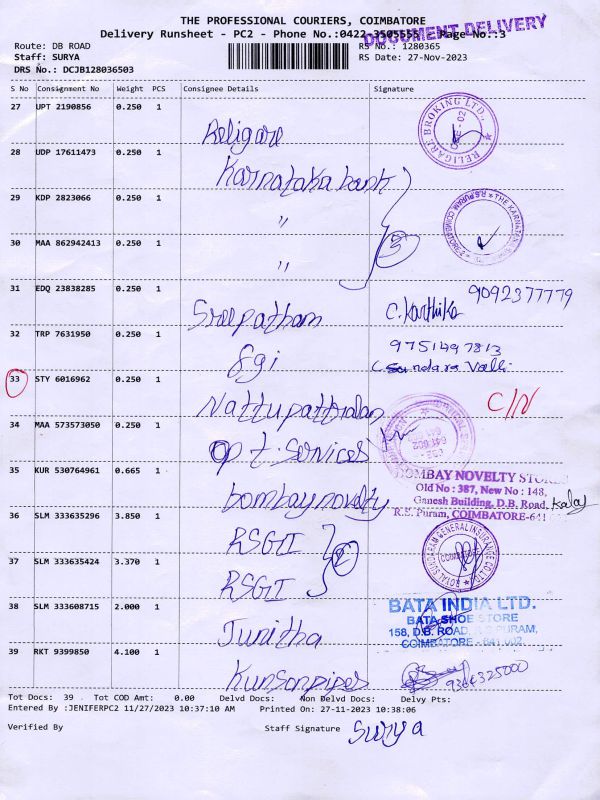 THE PROFESSIONAL COURIERS, COIMBATORE
Delivery Runsheet - PC2 - Phone No.:0422-3505555 Page No.:3
DOCUMENT DELIVERY
Route: DB ROAD RS No.: 1280365
Staff: SURYA RS Date: 27-Nov-2023
DRS No.: DCJB128036503
S No Consignment No Weight PCS Consignee Details Signature
27 UPT 2190856 0.250 1
Religare
RELIGARE BROKING LTD.
28 UDP 17611473 0.250 1
Karnataka bank
29 KDP 2823066 0.250 1
"
30 MAA 862942413 0.250 1
" 3
31 EDQ 23838285 0.250 1
Sreepatham C. Karthika 9092377779
32 TRP 7631950 0.250 1
Sgi 9751497813
C. Sundara Valli
33 STY 6016962 0.250 1
C/N
34 MAA 573573050 0.250 1
op t. Services
35 KUR 530764961 0.665 1
bombay novelty
BOMBAY NOVELTY STORES
Old No : 387, New No : 148,
Ganesh Building, D.B. Road,
R.S. Puram, COIMBATORE-641
36 SLM 333635296 3.850 1
RSGI 2
ROYAL SUNDARAM GENERAL INSURANCE CO. LTD.
COIMBATORE
37 SLM 333635424 3.370 1
RSGI
38 SLM 333608715 2.000 1
Junitha
BATA INDIA LTD.
BATA SHOE STORE
158, D.B. ROAD, R.S. PURAM,
COIMBATORE - 641 002
39 RKT 9399850 4.100 1
Kunsonpipes 9364325000
Tot Docs: 39 Tot COD Amt: 0.00 Delvd Docs: Non Delvd Docs: Delvy Pts:
Entered By :JENIFERPC2 11/27/2023 10:37:10 AM Printed On: 27-11-2023 10:38:06
Verified By Staff Signature Surya